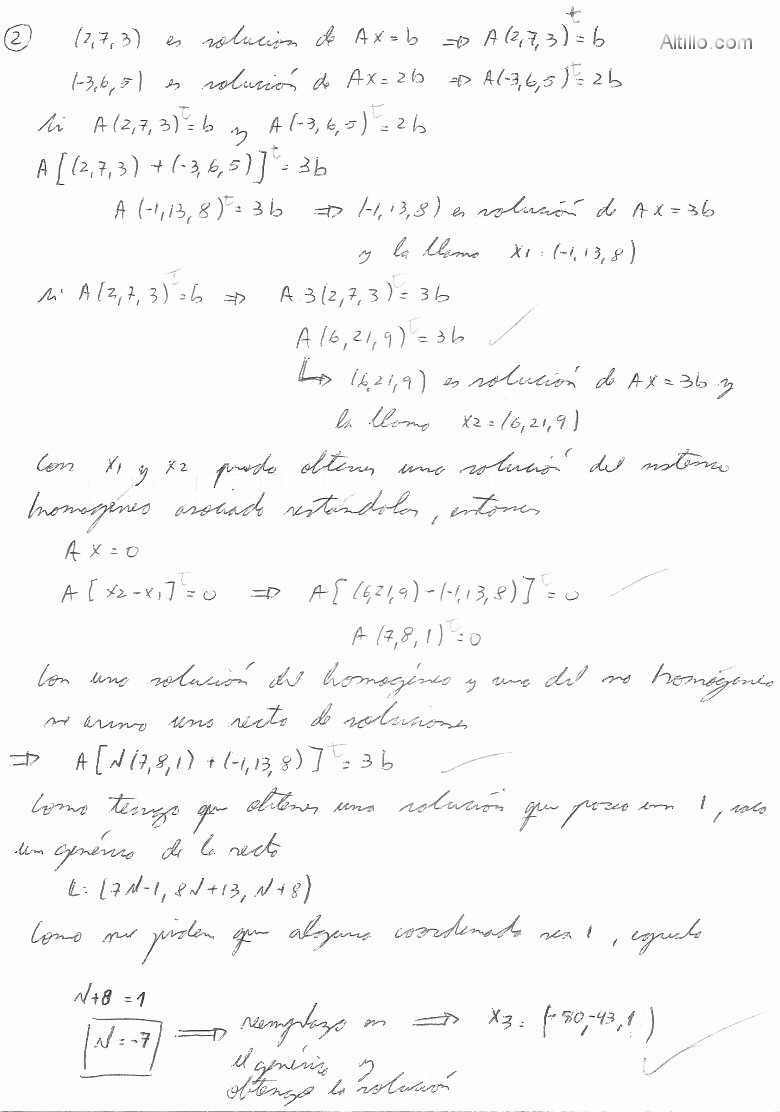 ② (2,7,3) es solución de Ax=b ⇒ A(2,7,3)ᵗ=b
Altillo.com
(-3,6,5) es solución de Ax=2b ⇒ A(-3,6,5)ᵗ=2b
Si A(2,7,3)ᵗ=b y A(-3,6,5)ᵗ=2b
A[(2,7,3)+(-3,6,5)]ᵗ=3b
A(-1,13,8)ᵗ=3b ⇒ (-1,13,8) es solución de Ax=3b
y la llamo x1:(-1,13,8)
si A(2,7,3)ᵗ=b ⇒ A3(2,7,3)ᵗ=3b
A(6,21,9)ᵗ=3b
↳ (6,21,9) es solución de Ax=3b y
la llamo x2=(6,21,9)
Con x1 y x2 puedo obtener una solución del sistema
homogéneo asociado restándolas, entonces
Ax=0
A[x2-x1]ᵗ=0 ⇒ A[(6,21,9)-(-1,13,8)]ᵗ=0
A(7,8,1)ᵗ=0
Con una solución del homogéneo y una del no homogéneo
se arma una recta de soluciones
⇒ A[λ(7,8,1)+(-1,13,8)]ᵗ=3b
Como tengo que obtener una solución que posea un 1, saco
un genérico de la recta
L:(7λ-1, 8λ+13, λ+8)
Como me piden que alguna coordenada sea 1, igualo
λ+8=1
λ=-7 ⇒ reemplazo en ⇒ x3=(-50,-43,1)
el genérico y
obtengo la solución